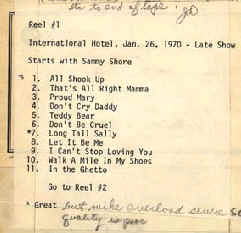 to end of tape
Reel #1
International Hotel, Jan. 26, 1970 - Late Show
Starts with Sammy Shore
1. All Shook Up
2. That's All Right Mamma
3. Proud Mary
4. Don't Cry Daddy
5. Teddy Bear
6. Don't Be Cruel
*7. Long Tall Sally
8. Let It Be Me
9. I Can't Stop Loving You
10. Walk A Mile In My Shoes
11. In the Ghetto
Go to Reel #2
* Great but mike overload
quality is poor